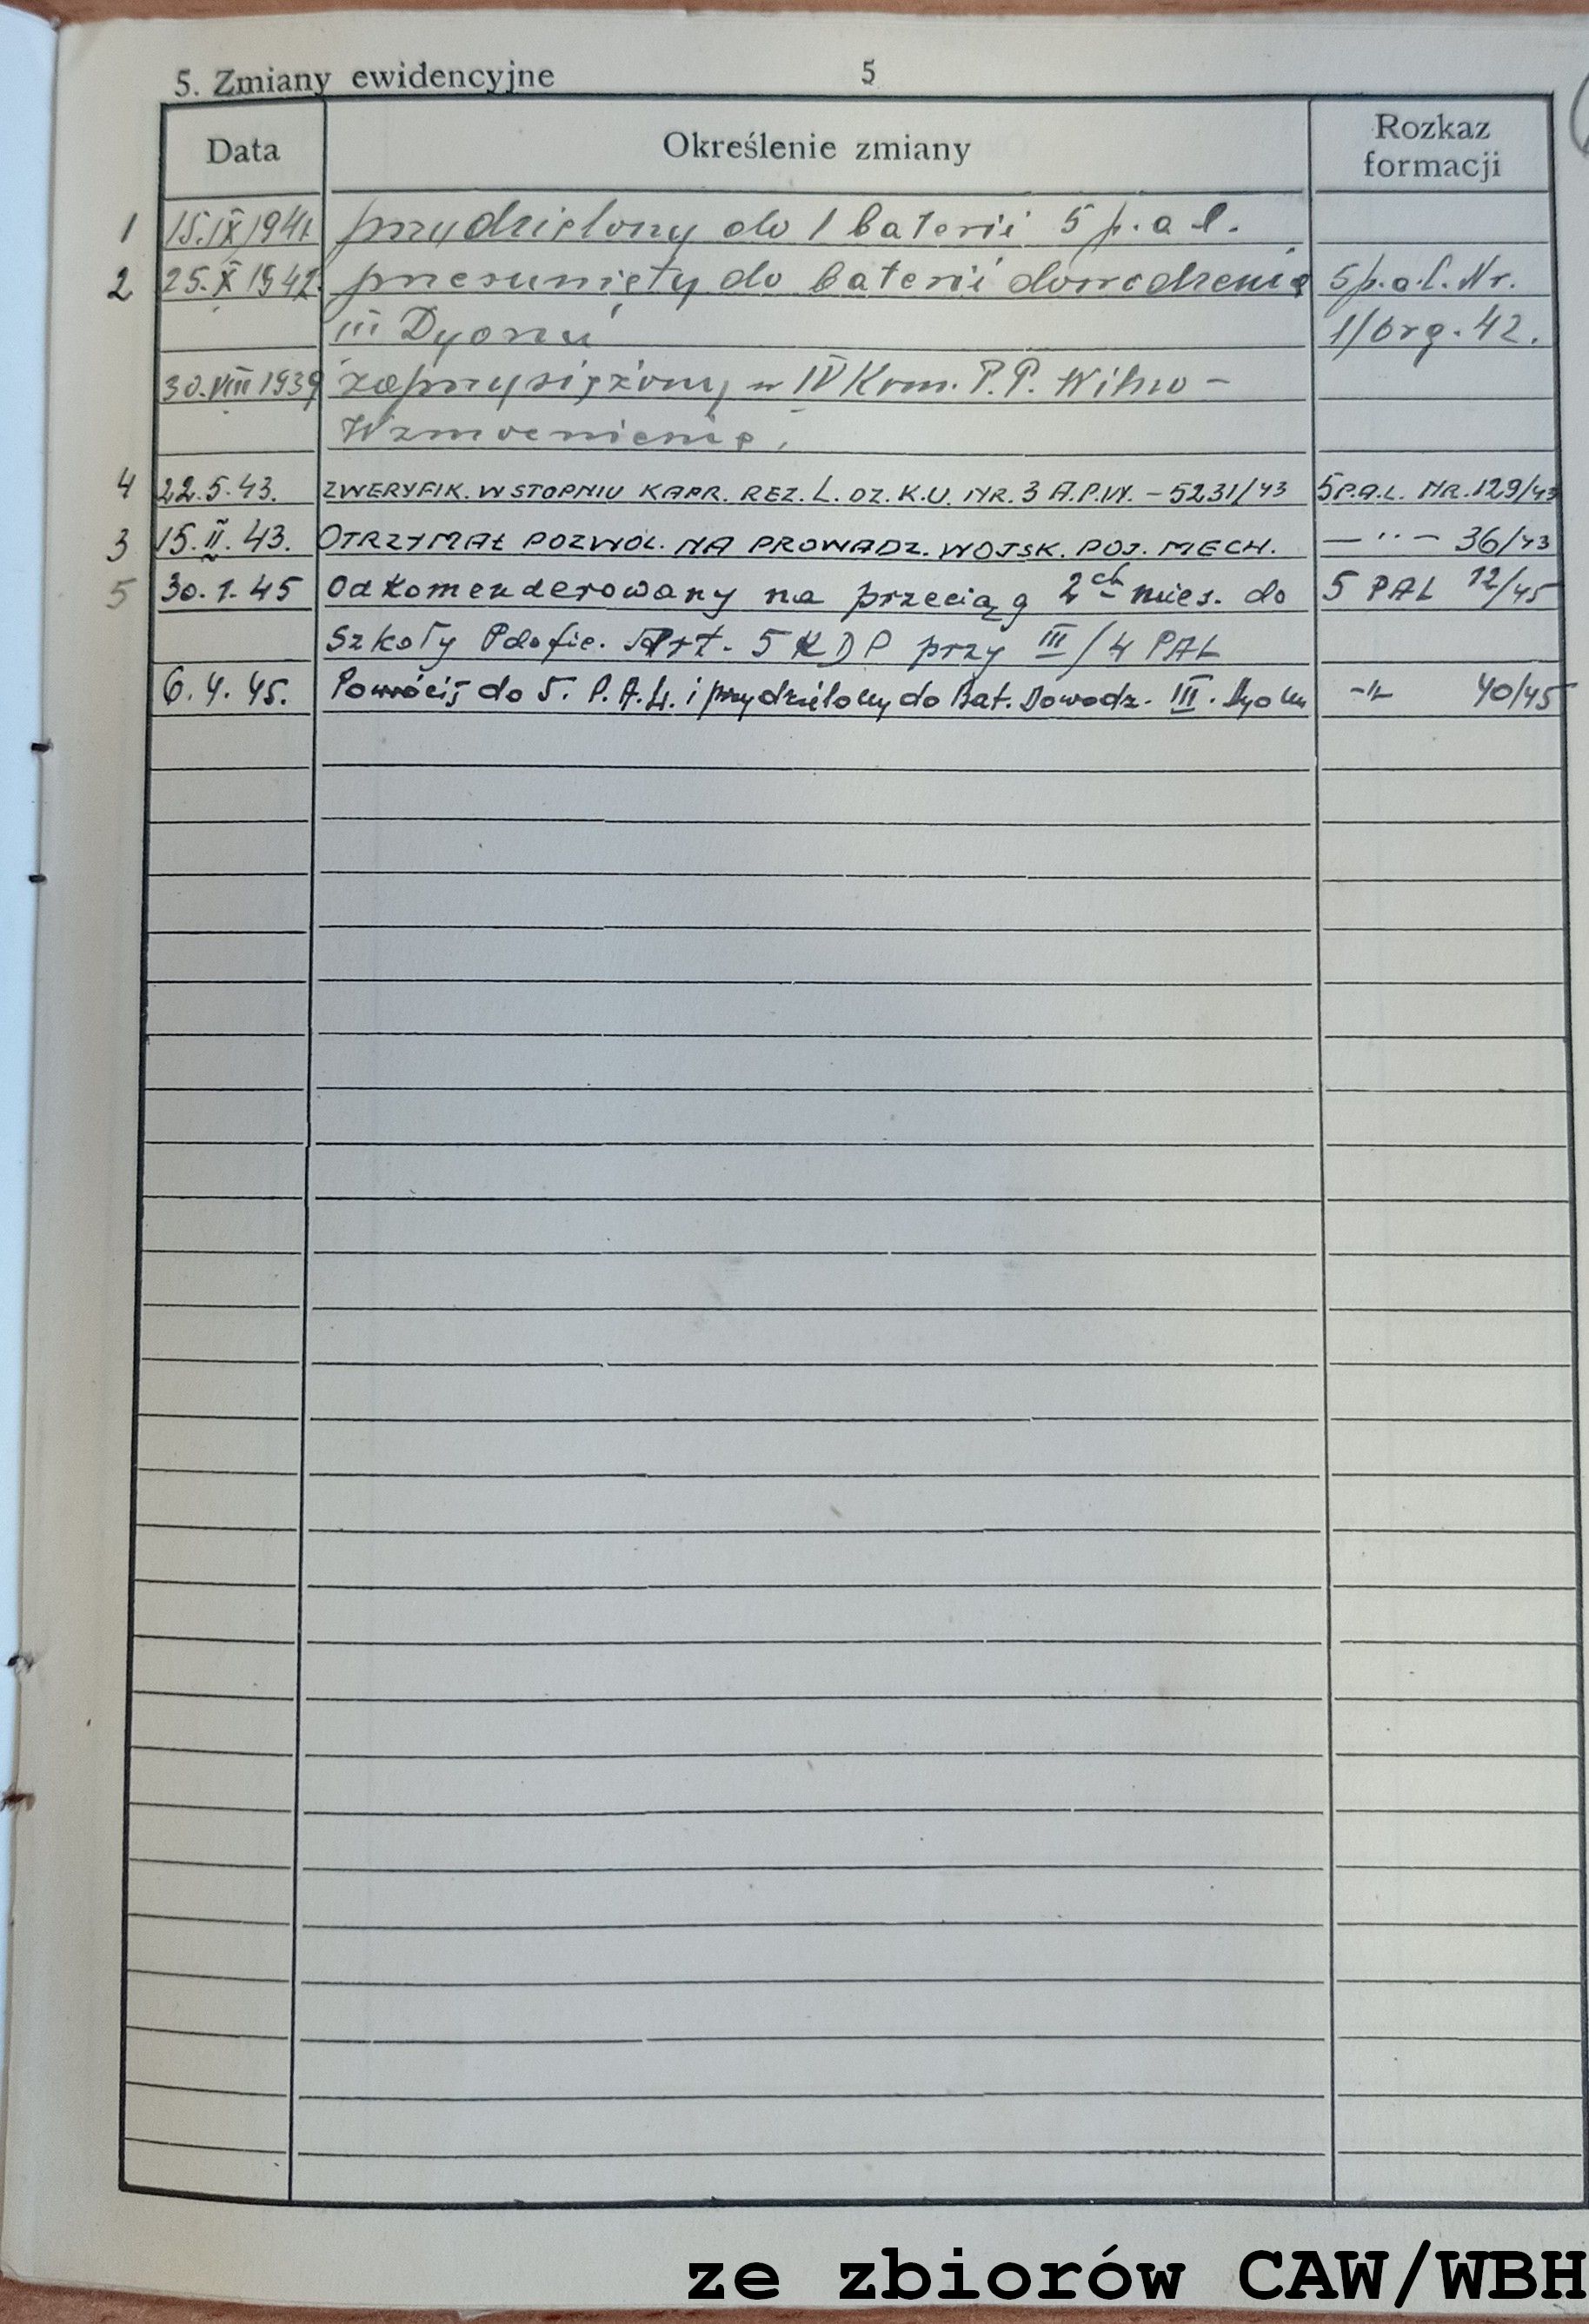 5. Zmiany ewidencyjne 5
Data Określenie zmiany Rozkaz formacji
1 15.IX 1941. przydzielony do 1 baterii 5 p.a.l.
2 25.X 1942. przesunięty do baterii dowodzenia 5 p.a.l. Nr.
III Dyonu 1/org. 42.
30.VIII 1939 zaprzysiężony w IV Kom. P.P. Wilno -
4 22.5.43. ZWERYFIK. W STOPNIU KAPR. REZ. L. DZ. K.U. NR. 3 A.P.W. - 5231/43 5 P.A.L. NR. 129/43
3 15.II.43. OTRZYMAŁ POZWOL. NA PROWADZ. WOJSK. POJ. MECH. — ·· — 36/43
5 30.1.45 Odkomenderowany na przeciąg 2ch mies. do 5 PAL 12/45
Szkoły Pdofic. Art. 5 KDP przy III/4 PAL
6.4.45. Powrócił do 5. P.A.L. i przydzielony do Bat. Dowodz. III. Dyonu -"- 40/45
ze zbiorów CAW/WBH